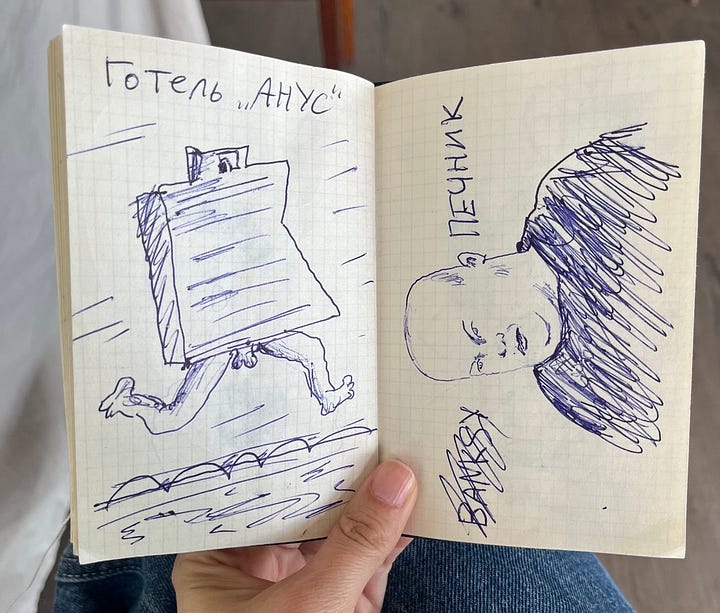 Готель „АНУС“
ПЕЧНИК
BANKSY